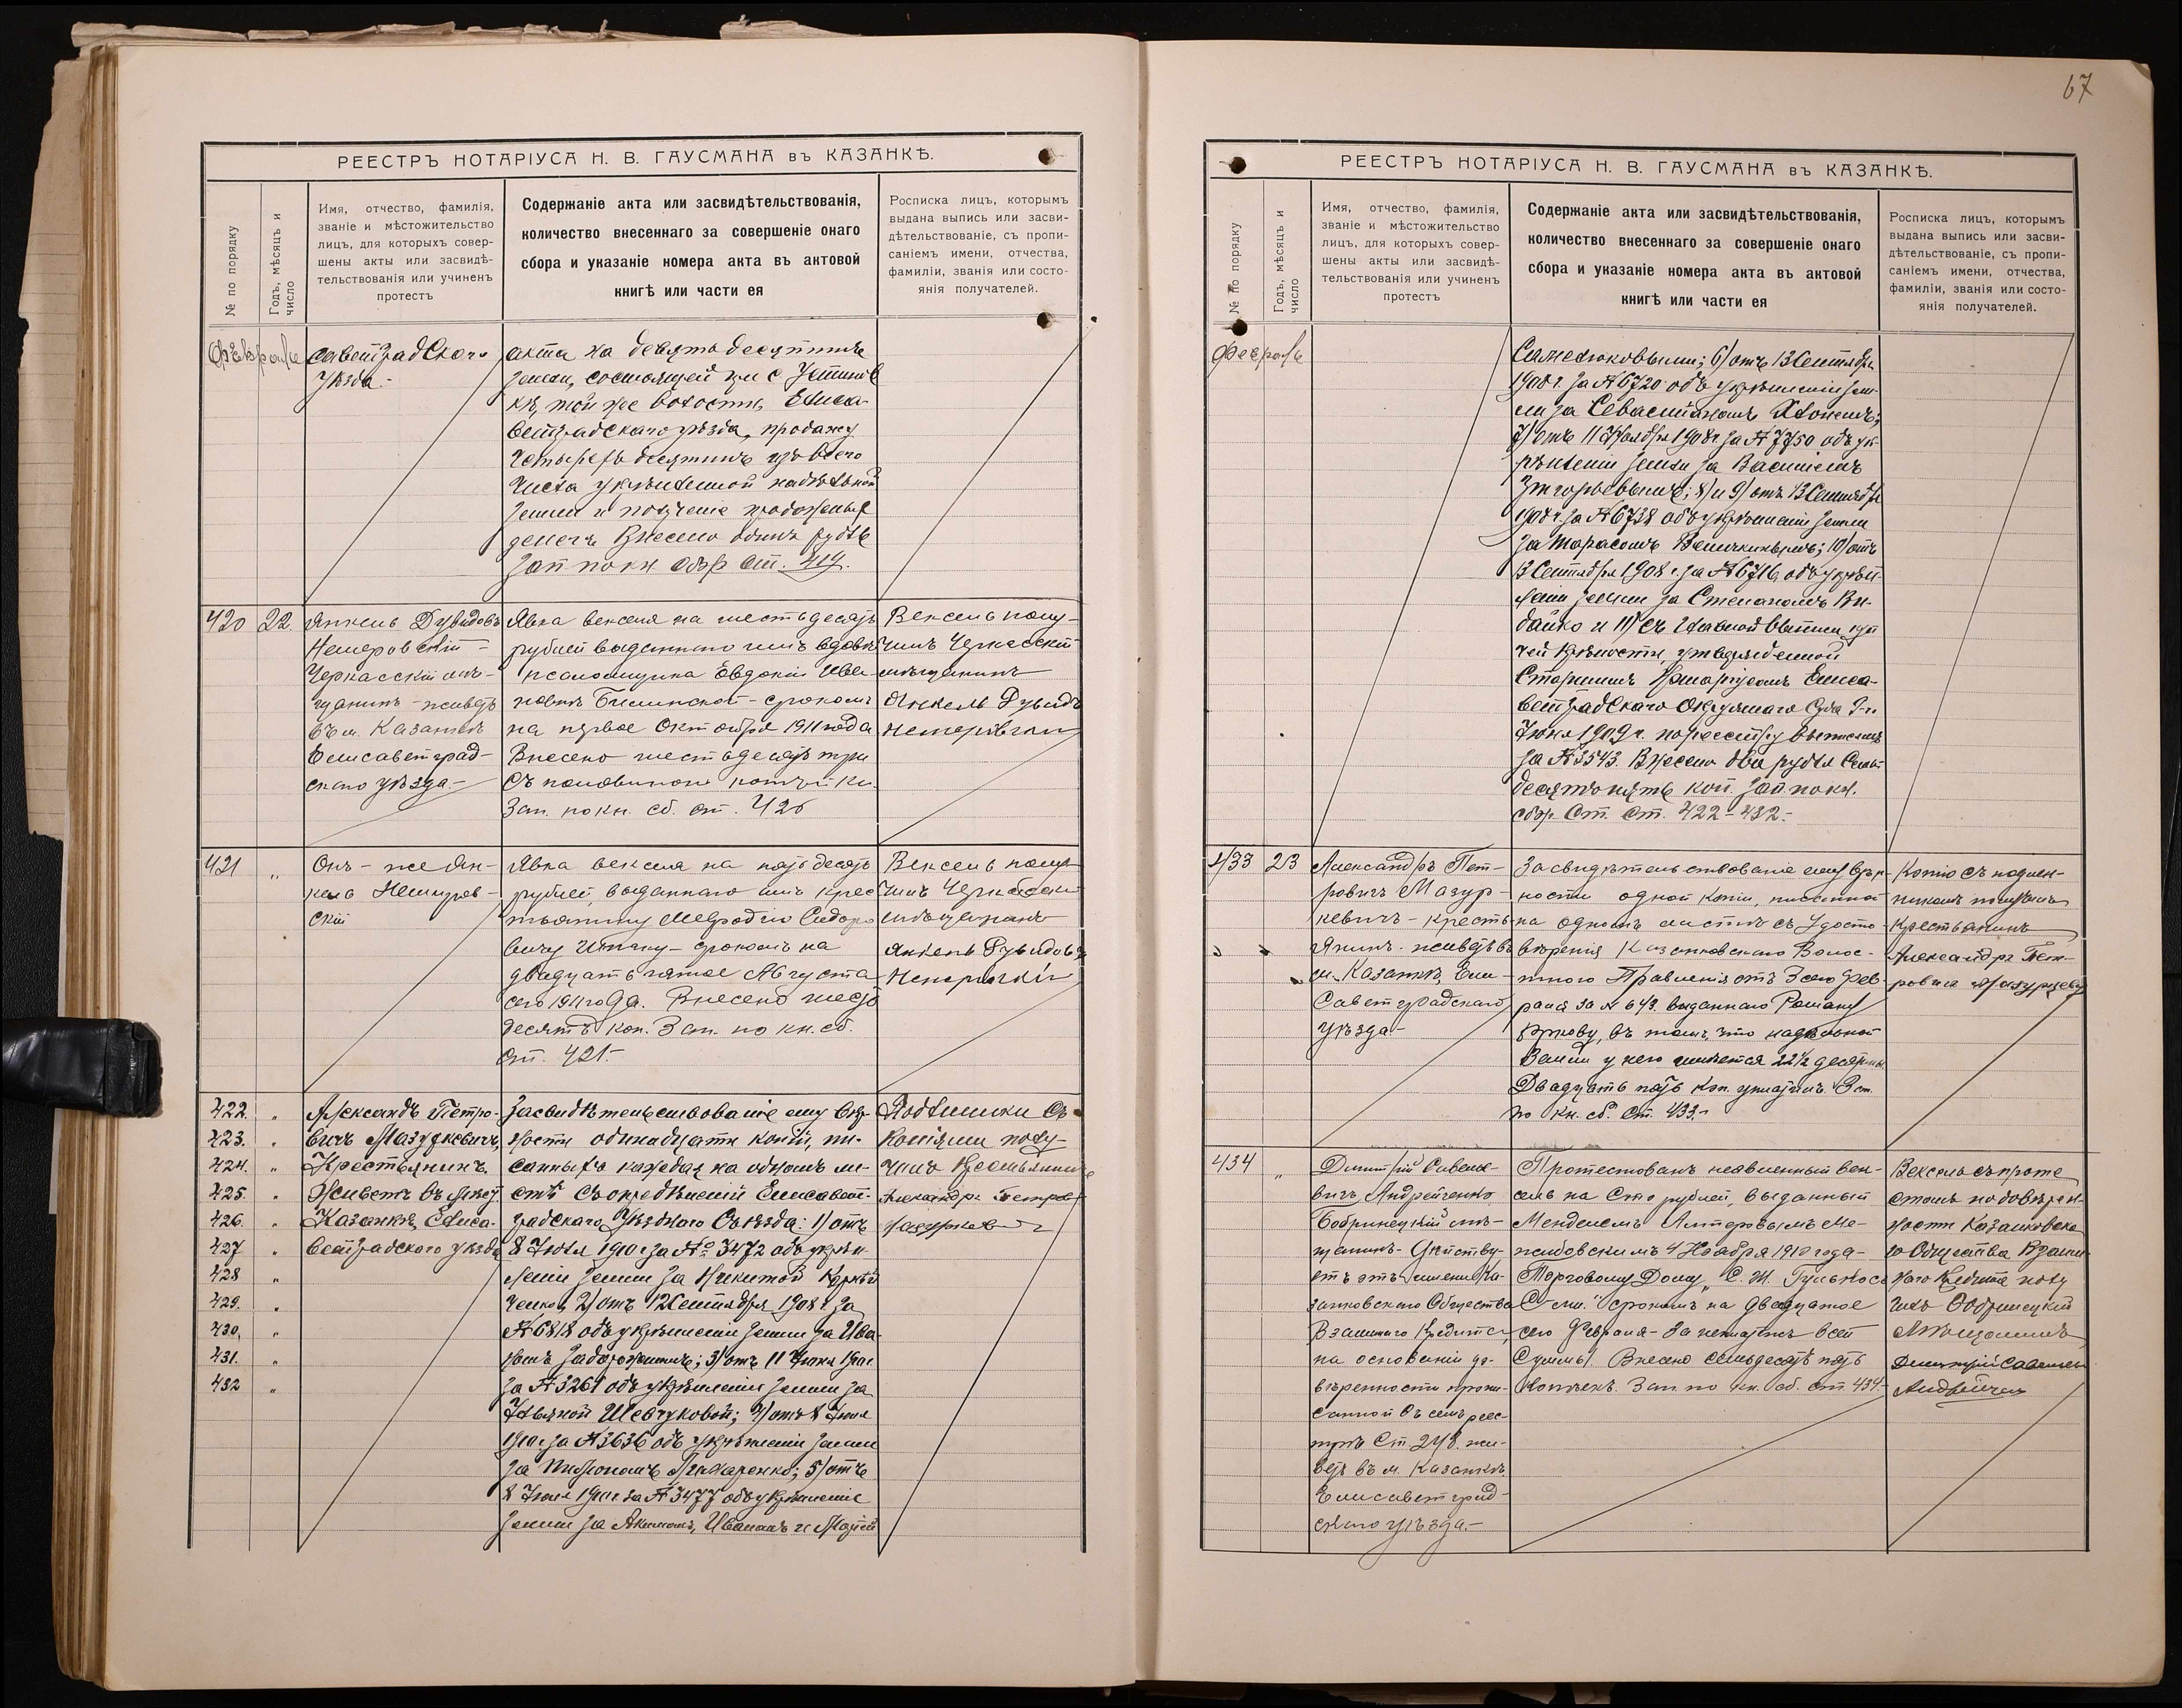 67
РЕЕСТРЪ НОТАРІУСА Н. В. ГАУСМАНА въ КАЗАНКѢ.
№ по порядку
Годъ, мѣсяцъ и
число
Имя, отчество, фамилія,
званіе и мѣстожительство
лицъ, для которыхъ совер-
шены акты или засвидѣ-
тельствованія или учиненъ
протестъ
Содержаніе акта или засвидѣтельствованія,
количество внесеннаго за совершеніе онаго
сбора и указаніе номера акта въ актовой
книгѣ или части ея
Росписка лицъ, которымъ
выдана выпись или засви-
дѣтельствованіе, съ пропи-
саніемъ имени, отчества,
фамиліи, званія или состо-
янія получателей.
Февраль
саветградскаго
уѣзда.-
акта на девять десятинъ
земли, состоящей при с
той же волости, Елиса-
ветградскаго уѣзда, продажу
четырехъ десятинъ изъ всего
числа укрѣпленной надѣльной
земли и полученіе
денегъ Внесено одинъ рубль
Зап по кн сбор ст. 419.
420
22.
Янкель Дувидовъ
Немеровскій -
Черкасскій мѣ-
щанинъ - живетъ
въ м. Казанкѣ
Елисаветград-
скаго уѣзда.-
Явка векселя на шестьдесятъ
рублей выданнаго имъ вдовѣ
псаломщика Евдокіи Ива-
новнѣ Билинской - срокомъ
на первое Октября 1911 года
Внесено шестьдесятъ три
съ половиною копѣйки.
Зап. по кн. сб. ст. 420
Вексель полу-
чилъ Черкасскій
мѣщанинъ
Янкель Дувидъ
421
"
Онъ - же Ян-
кель Немиров-
скій
Явка векселя на пятьдесятъ
рублей, выданнаго имъ крес
тьянину Меѳодію Сидоро
вичу - срокомъ на
двадцать пятое Августа
сего 1911 года. Внесено шесть
десятъ коп. Зап. по кн. сб.
ст. 421.-
Вексель полу-
чилъ Черкасскій
мѣщанинъ
Янкель Дувидовъ
422.
"
423.
"
424.
"
425.
"
426.
"
427
"
428
"
429.
"
430.
"
431.
"
432
"
Александъ Петро-
вичъ Мазуркевичъ,
Крестьянинъ.
Живетъ въ мѣст.
Казанкѣ, Елиса-
ветградского уѣзда
Засвидѣтельствованіе ему вѣр-
ности одинадцати копій, пи-
санныхъ каждая на одномъ ли-
стѣ съ опредѣленій Елисавет-
градскаго Уѣзднаго Съѣзда: 1) отъ
8 Іюля 1910 г за № 3472 объ укрѣп
леніи земли за Никитой
2) отъ 12 Сентября 1908 г за
№ 6818 объ укрѣпленіи земли за Ива-
номъ 3) отъ 11 Іюня 1910 г.
за № 3261 объ укрѣпленіи земли за
Шевчуковой; 4) отъ 8 Іюля
1910 г за № 3636 объ укрѣпленіи земли
за 5) отъ
8 Іюля 1910 г за № 3477 объ укрѣпленіе
земли за Акимомъ, Иваномъ и Маріей
Подлинники съ
Копіями полу-
чилъ Крестьянинъ
Александръ Петров
РЕЕСТРЪ НОТАРІУСА Н. В. ГАУСМАНА въ КАЗАНКѢ.
№ по порядку
Годъ, мѣсяцъ и
число
Имя, отчество, фамилія,
званіе и мѣстожительство
лицъ, для которыхъ совер-
шены акты или засвидѣ-
тельствованія или учиненъ
протестъ
Содержаніе акта или засвидѣтельствованія,
количество внесеннаго за совершеніе онаго
сбора и указаніе номера акта въ актовой
книгѣ или части ея
Росписка лицъ, которымъ
выдана выпись или засви-
дѣтельствованіе, съ пропи-
саніемъ имени, отчества,
фамиліи, званія или состо-
янія получателей.
Февраль
6) отъ 13 Сентября
1908 г. за № 6720 объ укрѣпленіи зем-
ли за Севастіаномъ
7) отъ 11 Ноября 1908 г за № 7750 объ ук-
рѣпленіи земли за Василіемъ
Григорьевымъ; 8) и 9) отъ 13 Сентября
1908 г за № 6738 объ укрѣпленіи земли
за Тарасомъ 10) отъ
13 Сентября 1908 г. за № 6716, объ укрѣп-
леніи земли за Степаномъ Ви-
байко и 11) съ главной выписи куп
чей крѣпости, утвержденной
Старшимъ Нотаріусомъ Елиса-
ветградскаго Окружнаго Суда 7-го
Іюня 1909 г. по реестру выписей
за № 3543. Внесено два рубля Семь-
десятъ пять коп. Зап. по кн.
сбор. Ст. Ст. 422-432.-
433
23
Александръ Пет-
ровичъ Мазур-
кевичъ - кресть-
янинъ. живетъ въ
м. Казанкѣ, Ели-
саветградскаго
уѣзда.-
Засвидѣтельствованіе ему вѣр-
ности одной копіи, писанной
на одномъ листѣ съ Удосто-
вѣренія Казанковского Волос-
тного Правленія отъ 3 сего Фев-
раля за № 643. выданнаго Роману
въ томъ, что надѣльной
Земли у него имѣется 22 1/2 десятины
Двадцать пять коп. уплатилъ. Зап.
по кн. сб. Ст. 433.-
Копію съ подлин-
никомъ получилъ
Крестьянинъ
Александръ Пет-
ровичъ
434
"
Димитрій Савелье-
вичъ Андрейченко
Бобринецкій мѣ-
щанинъ - Дѣйству-
етъ отъ имени Ка-
занковскаго Общества
Взаимнаго Кредита,
на основаніи до-
вѣренности пропи-
санной въ семъ реес-
трѣ Ст 248. жи-
ветъ въ м. Казанкѣ
Елисаветград-
скаго уѣзда.-
Протестованъ неявленный век-
сель на Сто рублей, выданный
Менделемъ
4 Ноября 1910 года -
Торговому Дому „С. М.
С-ми." срокомъ на двадцатое
сего Февраля - За неплатежъ всей
Суммы. Внесено семьдесятъ пять
копѣекъ. Зап. по кн. сб. ст. 434.-
Вексель съ проте
стомъ по довѣрен-
ности Казанковска
го Общества Взаим-
наго Кредита полу
чилъ Бобринецкій
Мѣщанинъ
Димитрій Савельев